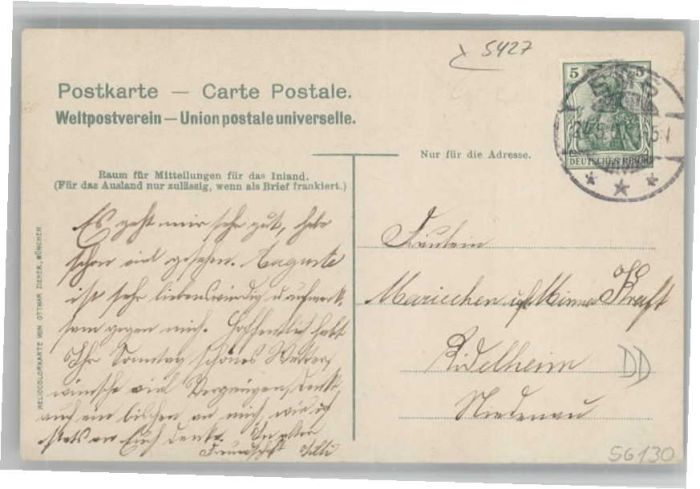 5427
Postkarte — Carte Postale.
Weltpostverein — Union postale universelle.
Nur für die Adresse.
5 5
DEUTSCHES REICH
Raum für Mitteilungen für das Inland.
(Für das Ausland nur zulässig, wenn als Brief frankiert.)
Es geht mir sehr gut, habe
schon viel gesehen. Auguste
ist sehr liebenswürdig u. aufmerk
sam gegen mich. Hoffentlich habt
Ihr Sonntag schönes Wetter,
wünsche viel Vergnügen, denkt
auch ein bisschen an mich, wie ich
stets an Euch denke. In alter
Freundschaft
Fräulein
Mariechen Minna Kraft
Rödelheim
Niedenau
DD
56130
HELIOCOLORKARTE VON OTTMAR ZIEHER, MÜNCHEN